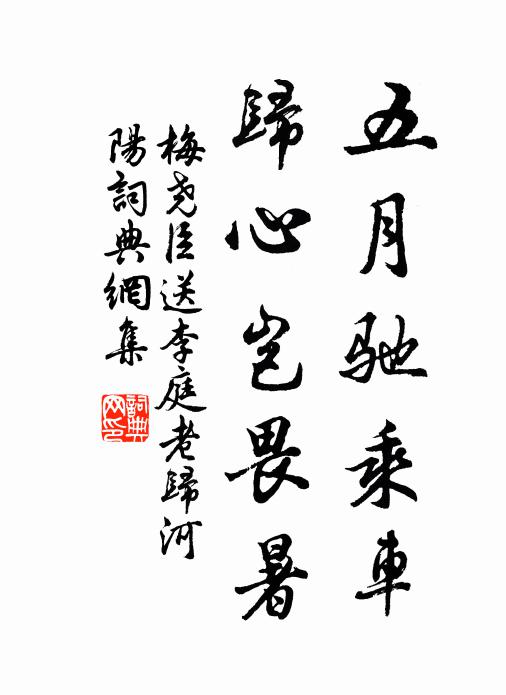 五月驰乘車
歸心岂畏暑
梅尧臣送李庭老歸河
陽詞典網集
詞典
网印